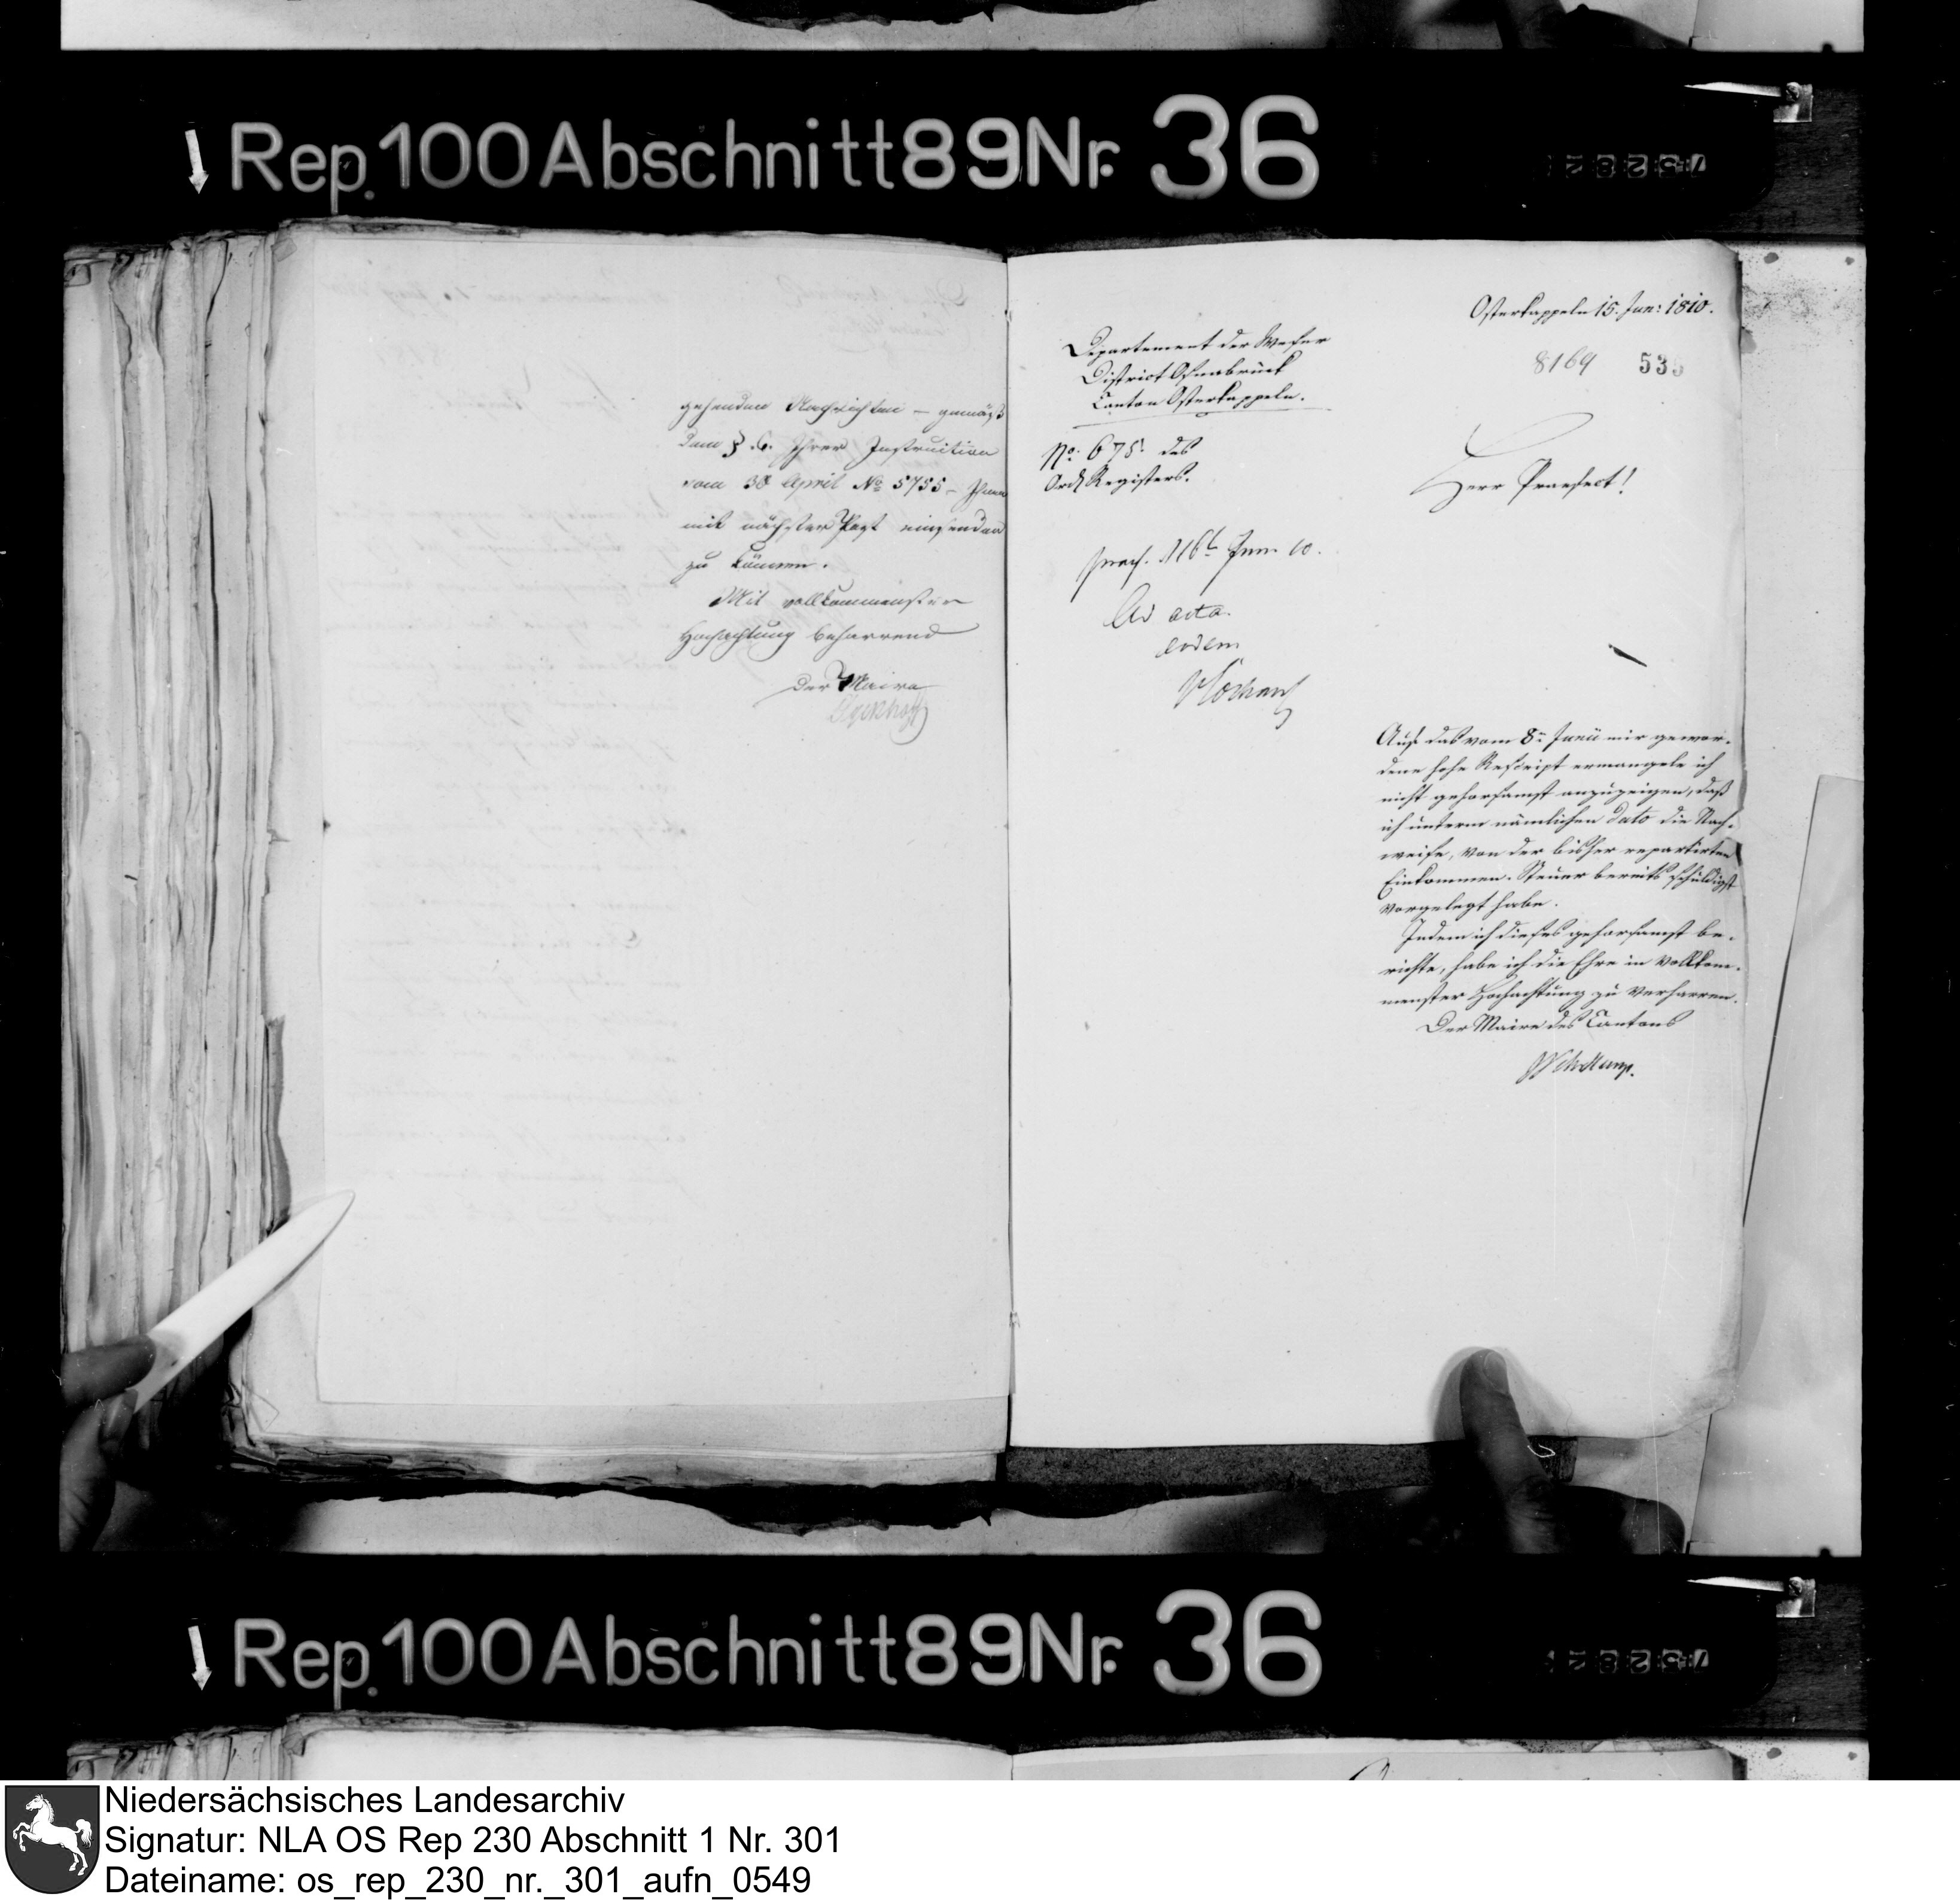 Rep. 100 Abschnitt 89 Nr. 36
gehenden Nachrichten – gemäß
dem § 6. Ihrer Instruction
vom 30 April No 5755 – Ihnen
mit nächster Post einsenden
zu können.
Mit vollkommenster
Hochachtung beharrend
Der Maire
Osterkappeln 15. Jun: 1810.
8169 535
Departement der Weser
District Osnabrück
Canton Osterkappeln.
No: 675. des
Ord. Registers.
Herr Praefect!
praes. d 16t Jun. 10.
Ad acta.
eodem
Auf das vom 8n Junii mir gewor-
dene hohe Rescript ermangele ich
nicht gehorsamst anzuzeigen, daß
ich unterm nämlichen dato die Nach-
weise, von der bisher repartirten
Einkommen-Steuer bereits schuldigst
vorgelegt habe.
Indem ich dieses gehorsamst be-
richte, habe ich die Ehre in vollkom-
menster Hochachtung zu verharren.
Der Maire des Cantons
Rep. 100 Abschnitt 89 Nr. 36
Niedersächsisches Landesarchiv
Signatur: NLA OS Rep 230 Abschnitt 1 Nr. 301
Dateiname: os_rep_230_nr._301_aufn_0549